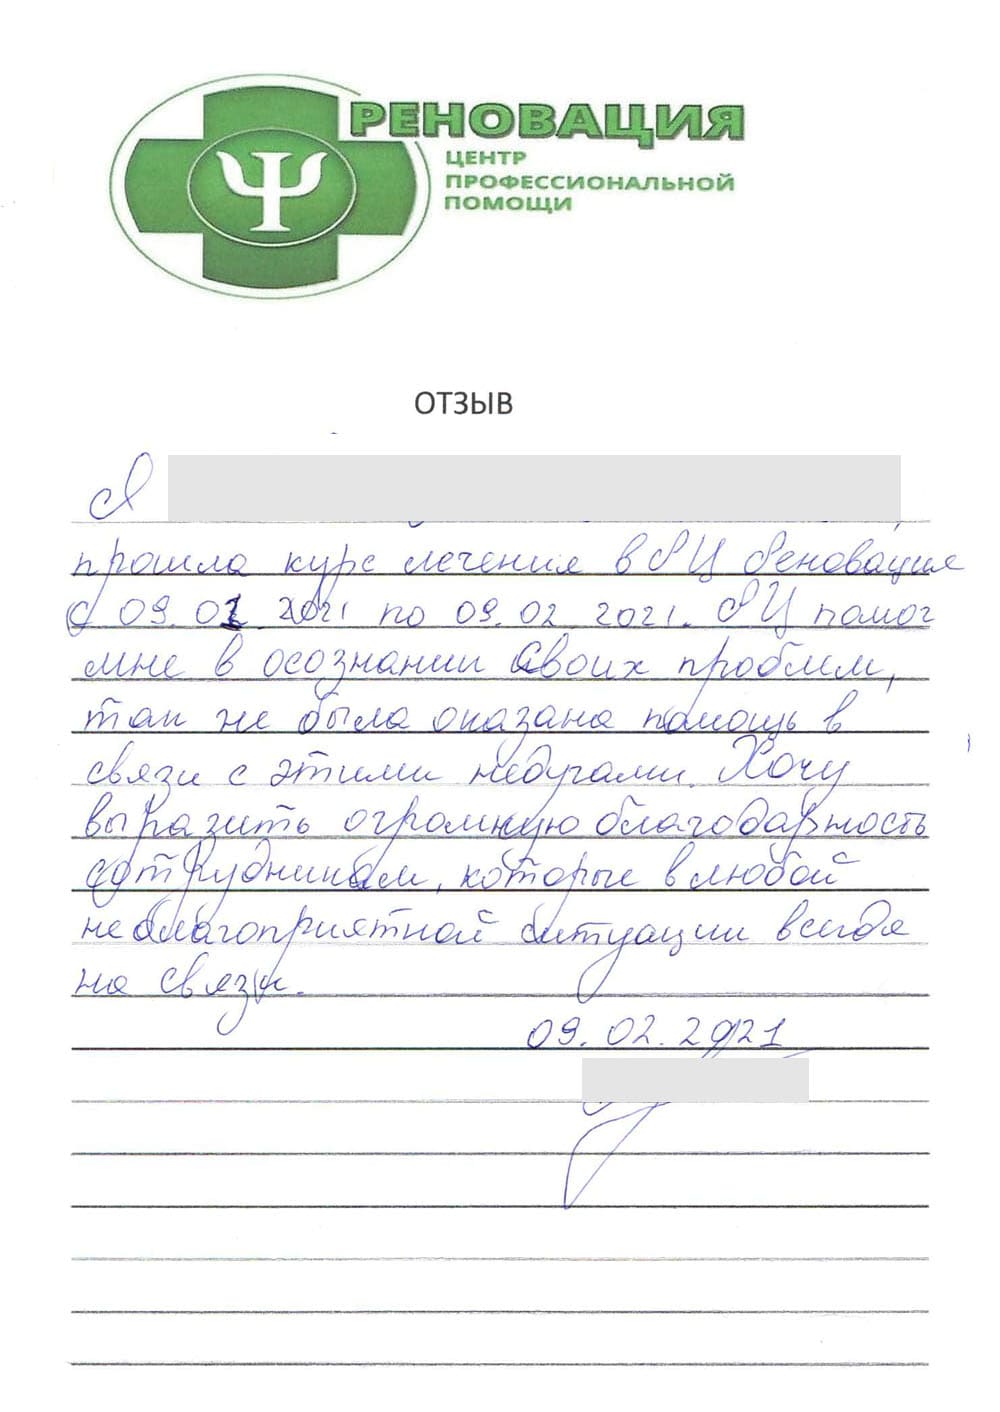 РЕНОВАЦИЯ
ЦЕНТР
ПРОФЕССИОНАЛЬНОЙ
ПОМОЩИ
ОТЗЫВ
Я
прошла курс лечения в РЦ Реновация
с 09.01.2021 по 09.02 2021. РЦ помог
мне в осознании своих проблем,
так же была оказана помощь в
связи с этими недугами. Хочу
выразить огромную благодарность
сотрудникам, которые в любой
неблагоприятной ситуации всегда
на связи.
09.02.2021